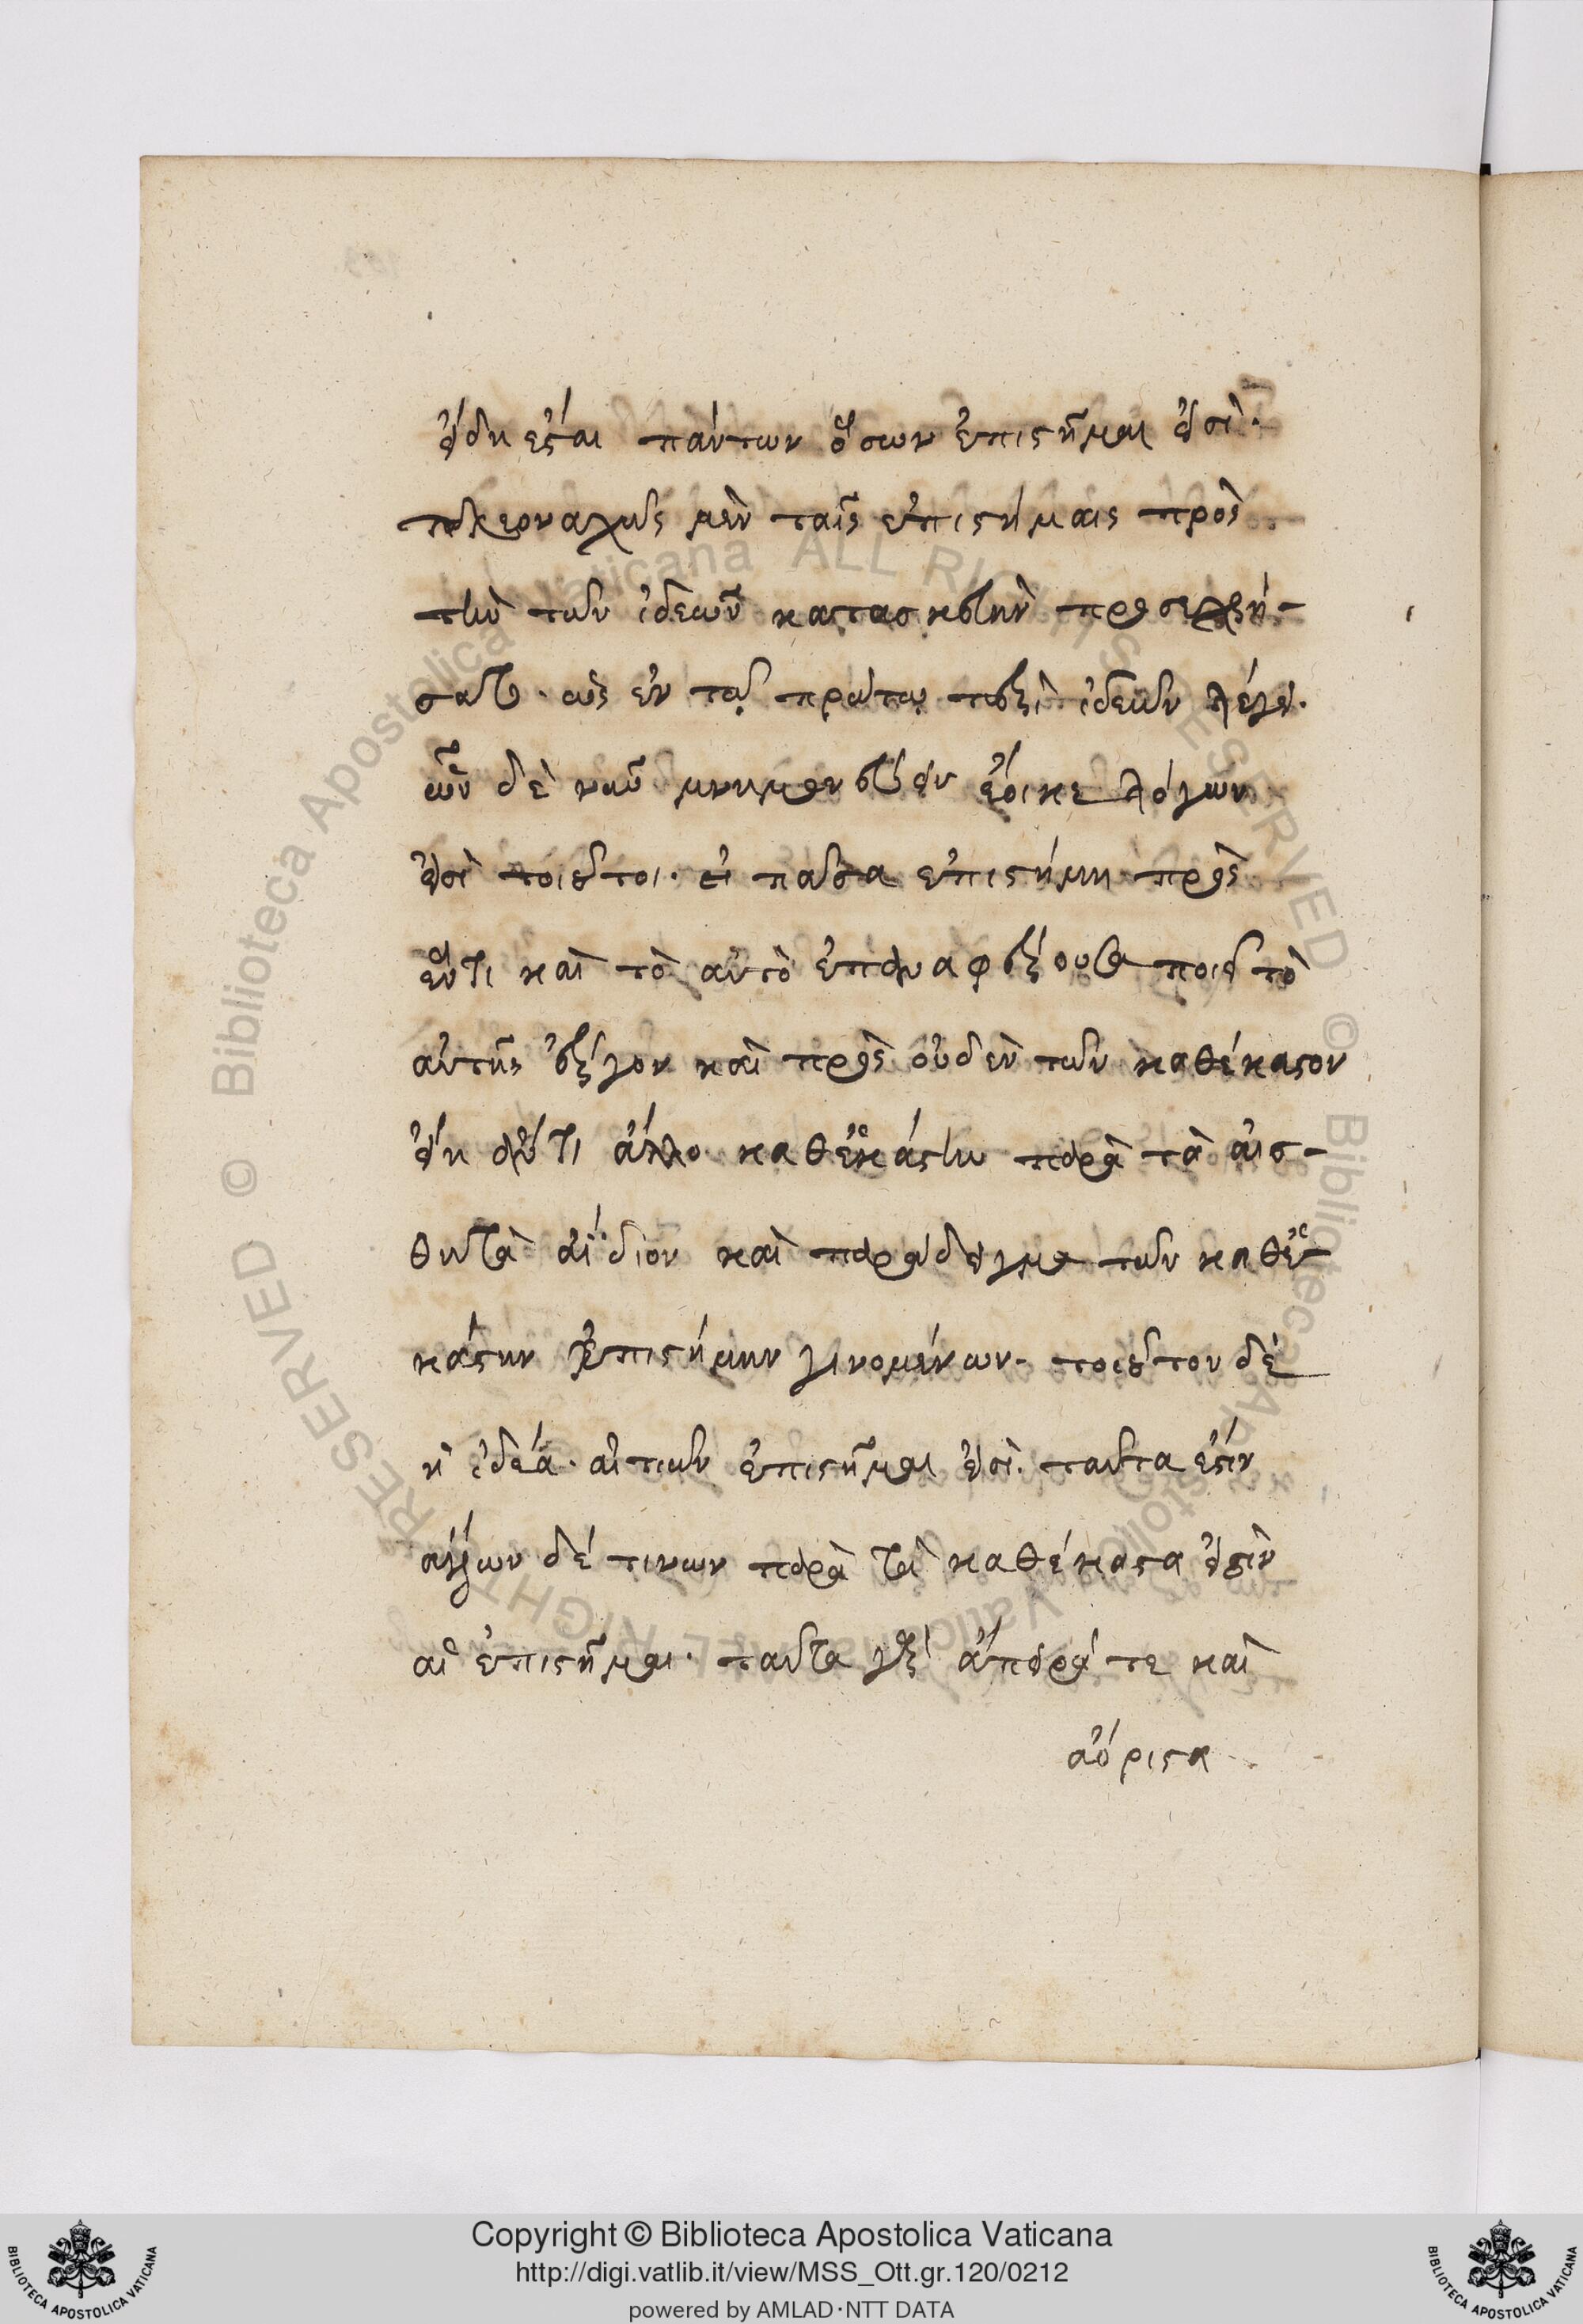 εἴδη ἔσται πάντων ὅσων ἐπιστῆμαι εἰσί·
πλεοναχῶς μὲν ταῖς ἐπιστήμαις πρὸς
τὴν τῶν ἰδεῶν κατασκευὴν προσεχρή-
σατο. ὡς ἐν τῷ πρώτῳ περὶ ἰδεῶν λέγει.
ὧν δὲ νῦν μνημονεύειν ἔοικε λόγων
εἰσὶ τοιοῦτοι. εἰ πᾶσα ἐπιστήμη πρὸς
ἕν τι καὶ τὸ αὐτὸ ἐπαναφέρουσα ποιεῖ τὸ
αὐτῆς ἔργον καὶ πρὸς οὐδὲν τῶν καθέκαστον
εἴη ἄν τι ἄλλο καθ' ἑκάστην παρὰ τὰ αἰσ-
θητὰ ἀΐδιον καὶ παράδειγμα τῶν καθ' ἑ-
κάστην ἐπιστήμην γινομένων. τοιοῦτον δὲ
ἡ ἰδέα. αἱ τινῶν ἐπιστῆμαι εἰσὶ. ταῦτα ἔστιν
ἄλλων δέ τινων παρὰ τὰ καθέκαστα εἰσὶν
αἱ ἐπιστῆμαι. ταῦτα γὰρ ἄπειρά τε καὶ
ἀόριστα
Copyright © Biblioteca Apostolica Vaticana
http://digi.vatlib.it/view/MSS_Ott.gr.120/0212
powered by AMLAD·NTT DATA